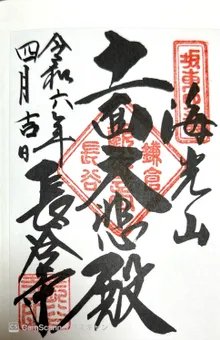 坂東四番
海光山
十一面大悲殿
鎌倉
長谷
長谷寺
令和六年
四月吉日
CamScanner